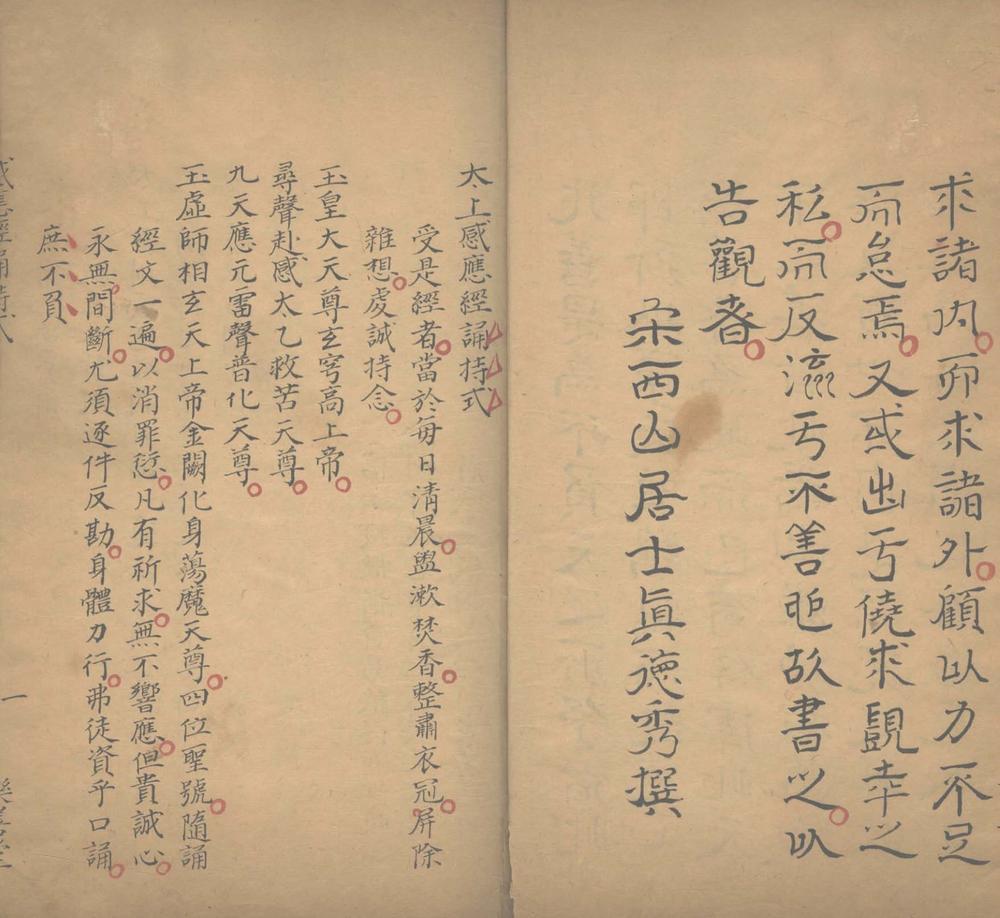 求諸內而求諸外顧以力不足
而怠焉又或出于僥求覬幸之
私而反流于不善也故書之以
告觀者
宋西山居士眞德秀撰
太上感應經誦持式
受是經者當於每日清晨盥漱焚香整肅衣冠屏除
雜想虔誠持念
玉皇大天尊玄穹高上帝
尋聲赴感太乙救苦天尊
九天應元雷聲普化天尊
玉虛師相玄天上帝金闕化身蕩魔天尊四位聖號隨誦
經文一遍以消罪愆凡有祈求無不響應但貴誠心
永無間斷尤須逐件反勘身體力行弗徒資乎口誦
庶不負
感應經誦持式 一